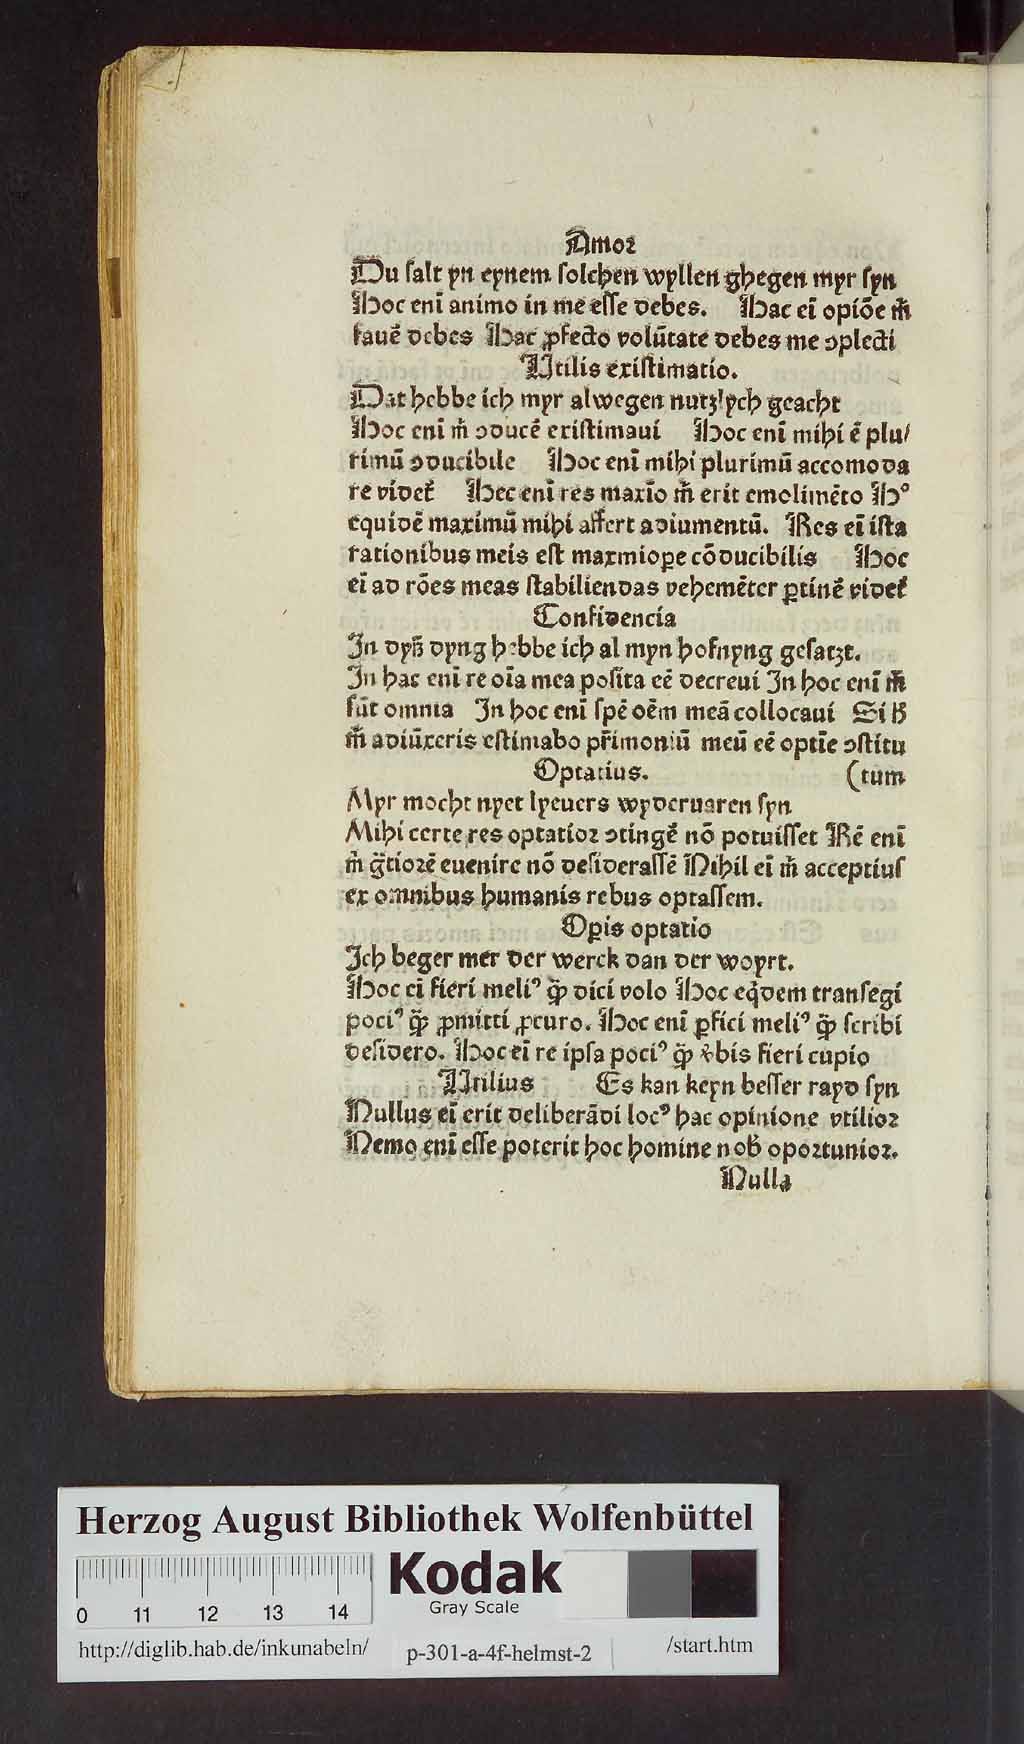 Amoꝛ
Du ſalt yn eynem ſolchen wyllen ghegen myr ſyn
Hoc enī animo in me eſſe debes. Hac eī opiōe m̄
fauē debes Hac ꝓfecto volūtate debes me ↄplecti
Utilis exiſtimatio.
Dat hebbe ich myr alwegen nutzlych geacht
Hoc enī m̄ ↄducē exiſtimaui Hoc enī mihi ē plu/
rimū ↄducibile Hoc enī mihi plurimū accomoda
re videt᷑ Hec enī res maxīo m̄ erit emolimēto Hº
equidē maximū mihi affert adiumentū. Res eī iſta
rationibus meis eſt maxmioꝑe cōducibilis Hoc
eī ad rōes meas ſtabiliendas vehemēter ꝑtinē videt᷑
Confidencia
In dyß dyng hebbe ich al myn hofnyng geſatzt.
In hac enī re oīa mea poſita eē decreui In hoc enī m̄
ſūt omnia In hoc enī ſpē oēm meā collocaui Si ß
m̄ adiūxeris eſtimabo pr̄imoniū meū eē optīe ↄſtitu
Optatius. (tum
Myr mocht nyet lyeuers wyderuaren ſyn
Mihi certe res optatioꝛ ↄtingē nō potuiſſet Rē enī
m̄ g̃tioꝛē euenire nō deſideraſſē Nihil eī m̄ acceptiuſ
ex omnibus humanis rebus optaſſem.
Oꝑis optatio
Ich beger mer der werck dan der woyrt.
Hoc eī fieri meliꝰ q̄ꝫ dici volo Hoc eq̇dem tranſegi
pociꝰ q̄ꝫ ꝓmitti ꝓcuro. Hoc enī ꝑfici meliꝰ q̄ꝫ ſcribi
deſidero. Hoc eī re ipſa pociꝰ q̄ꝫ v̓bis fieri cupio
Utilius Es kan keyn beſſer rayd ſyn
Nullus eī erit deliberādi locꝰ hac opinione vtilioꝛ
Nemo enī eſſe poterit hoc homine nob̄ opoꝛtunioꝛ.
Nulla
Herzog August Bibliothek Wolfenbüttel
Kodak
Gray Scale
0 11 12 13 14
http://diglib.hab.de/inkunabeln/ p-301-a-4f-helmst-2 /start.htm